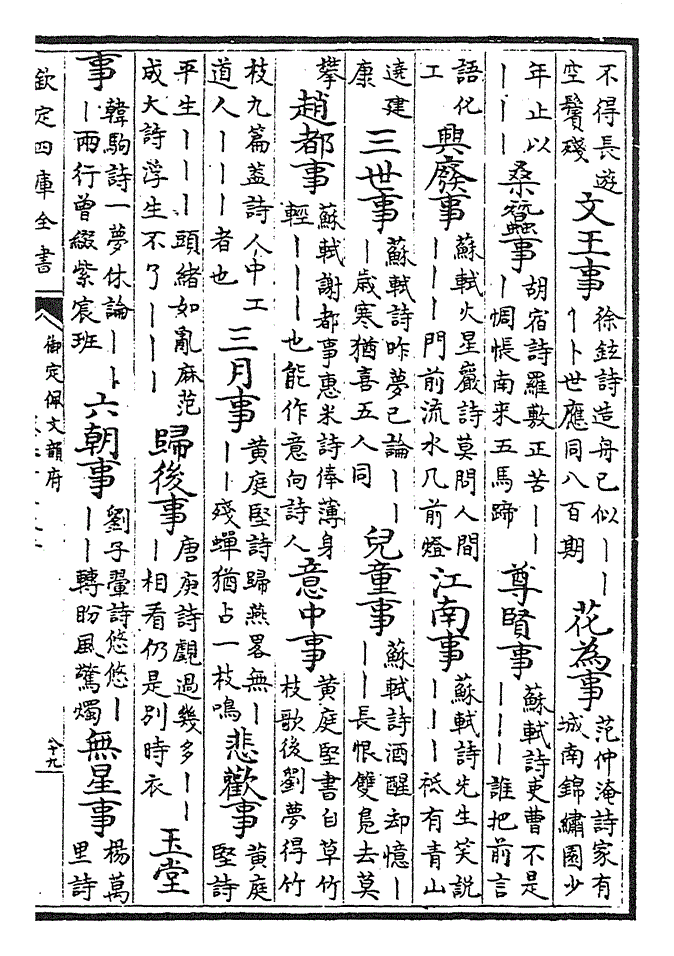 不得長遊空鬢殘 文王事 徐鉉詩造舟已似丨丨丨卜世應同八百期 花為事 范仲淹詩家有城南錦繡園少
年止以丨丨丨 桑蠶事 胡宿詩羅敷正苦丨丨丨惆悵南來五馬蹄 尊賢事 蘇軾詩吏曹不是丨丨丨誰把前言
語化工 興廢事 蘇軾火星巖詩莫問人間丨丨丨門前流水几前燈 江南事 蘇軾詩先生笑說丨丨丨祗有青山
遶建康 三世事 蘇軾詩昨夢已論丨丨丨歲寒猶喜五人同 兒童事 蘇軾詩酒醒却憶丨丨丨長恨雙鳬去莫
攀 趙都事 蘇軾謝都事惠米詩俸薄身輕丨丨丨也能作意向詩人 意中事 黄庭堅書自草竹枝歌後劉夢得竹
枝九篇蓋詩人中工道人丨丨丨者也 三月事 黄庭堅詩歸燕畧無丨丨丨殘蟬猶占一枝鳴 悲歡事 黄庭堅詩
平生丨丨丨頭緒如亂麻范成大詩浮生不了丨丨丨 歸後事 唐庚詩覷過幾多丨丨丨相看仍是别時衣 玉堂
事 韓駒詩一夢休論丨丨丨兩行曾綴紫宸班 六朝事 劉子翬詩悠悠丨丨丨轉盼風驚燭 無星事 楊萬里詩
欽定四庫全書 御定佩文韻府 八十九